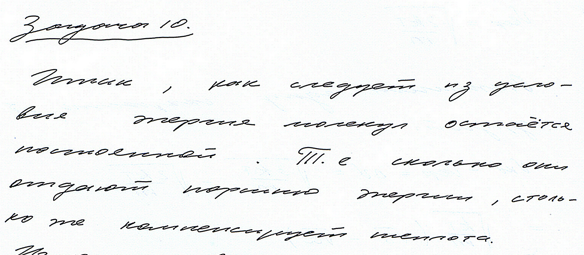 Задача 10.
Итак, как следует из усло-
вия энергия молекул остаётся
постоянной. Т.е сколько они
отдают поршню энергии, столь-
ко же компенсирует теплота.